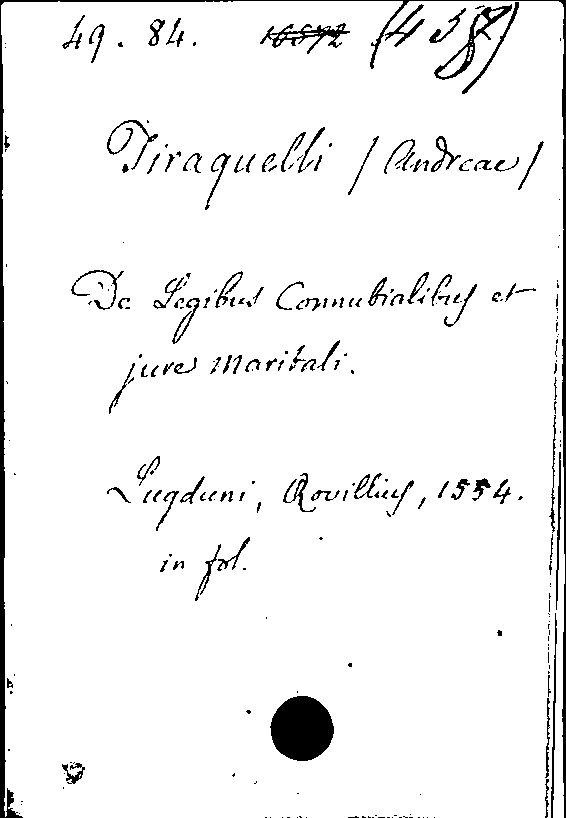 49. 84. 16572
Tiraquelli / Andreae /
De Legibus Connubialibus et
jure maritali.
Lugduni, Rovillius, 1554.
in fol.